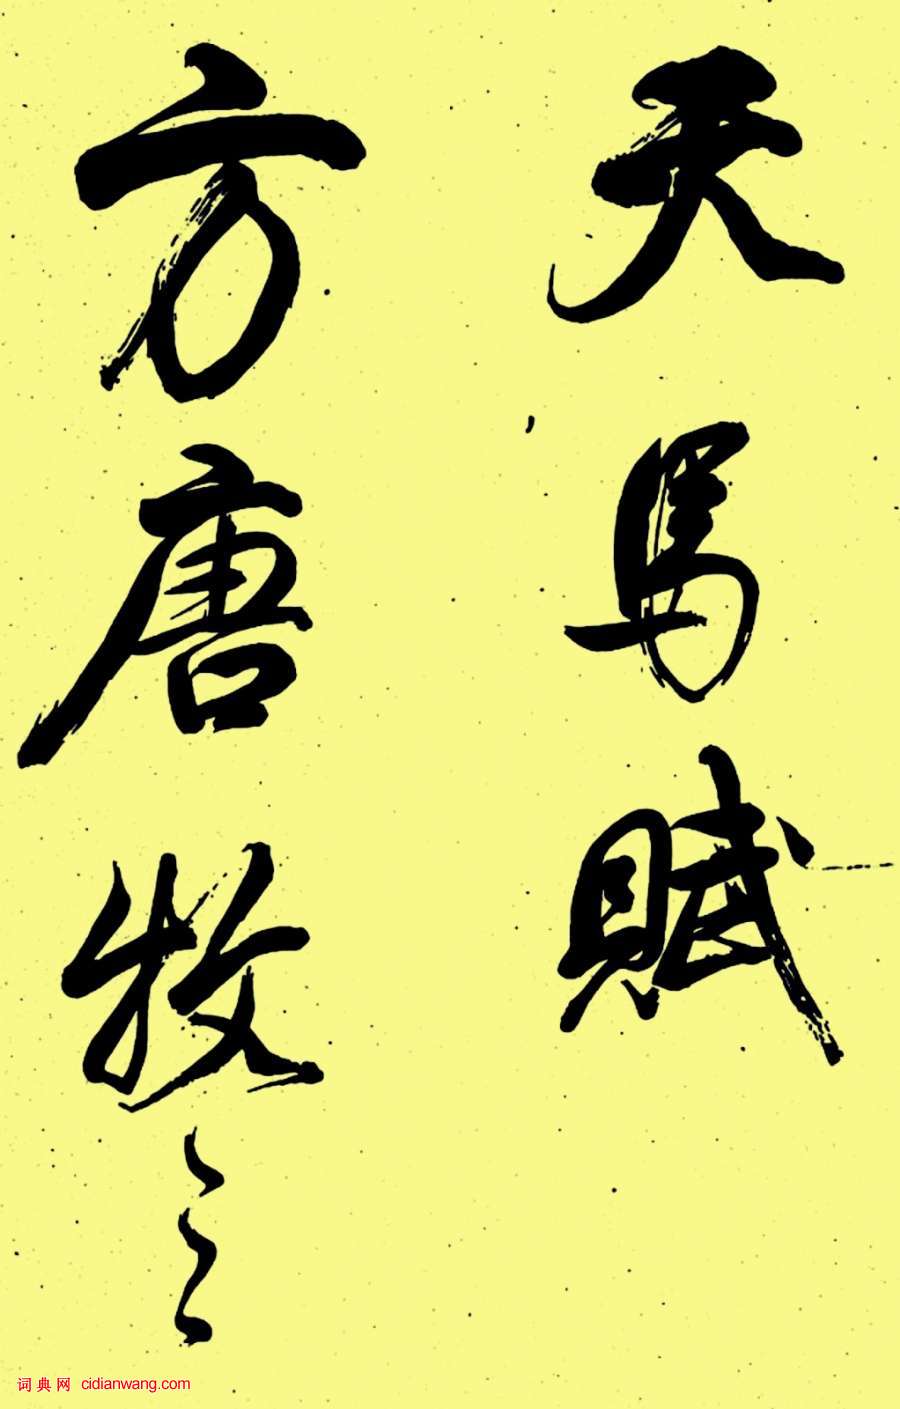 天馬賦
方唐牧之
词典网 cidianwang.com